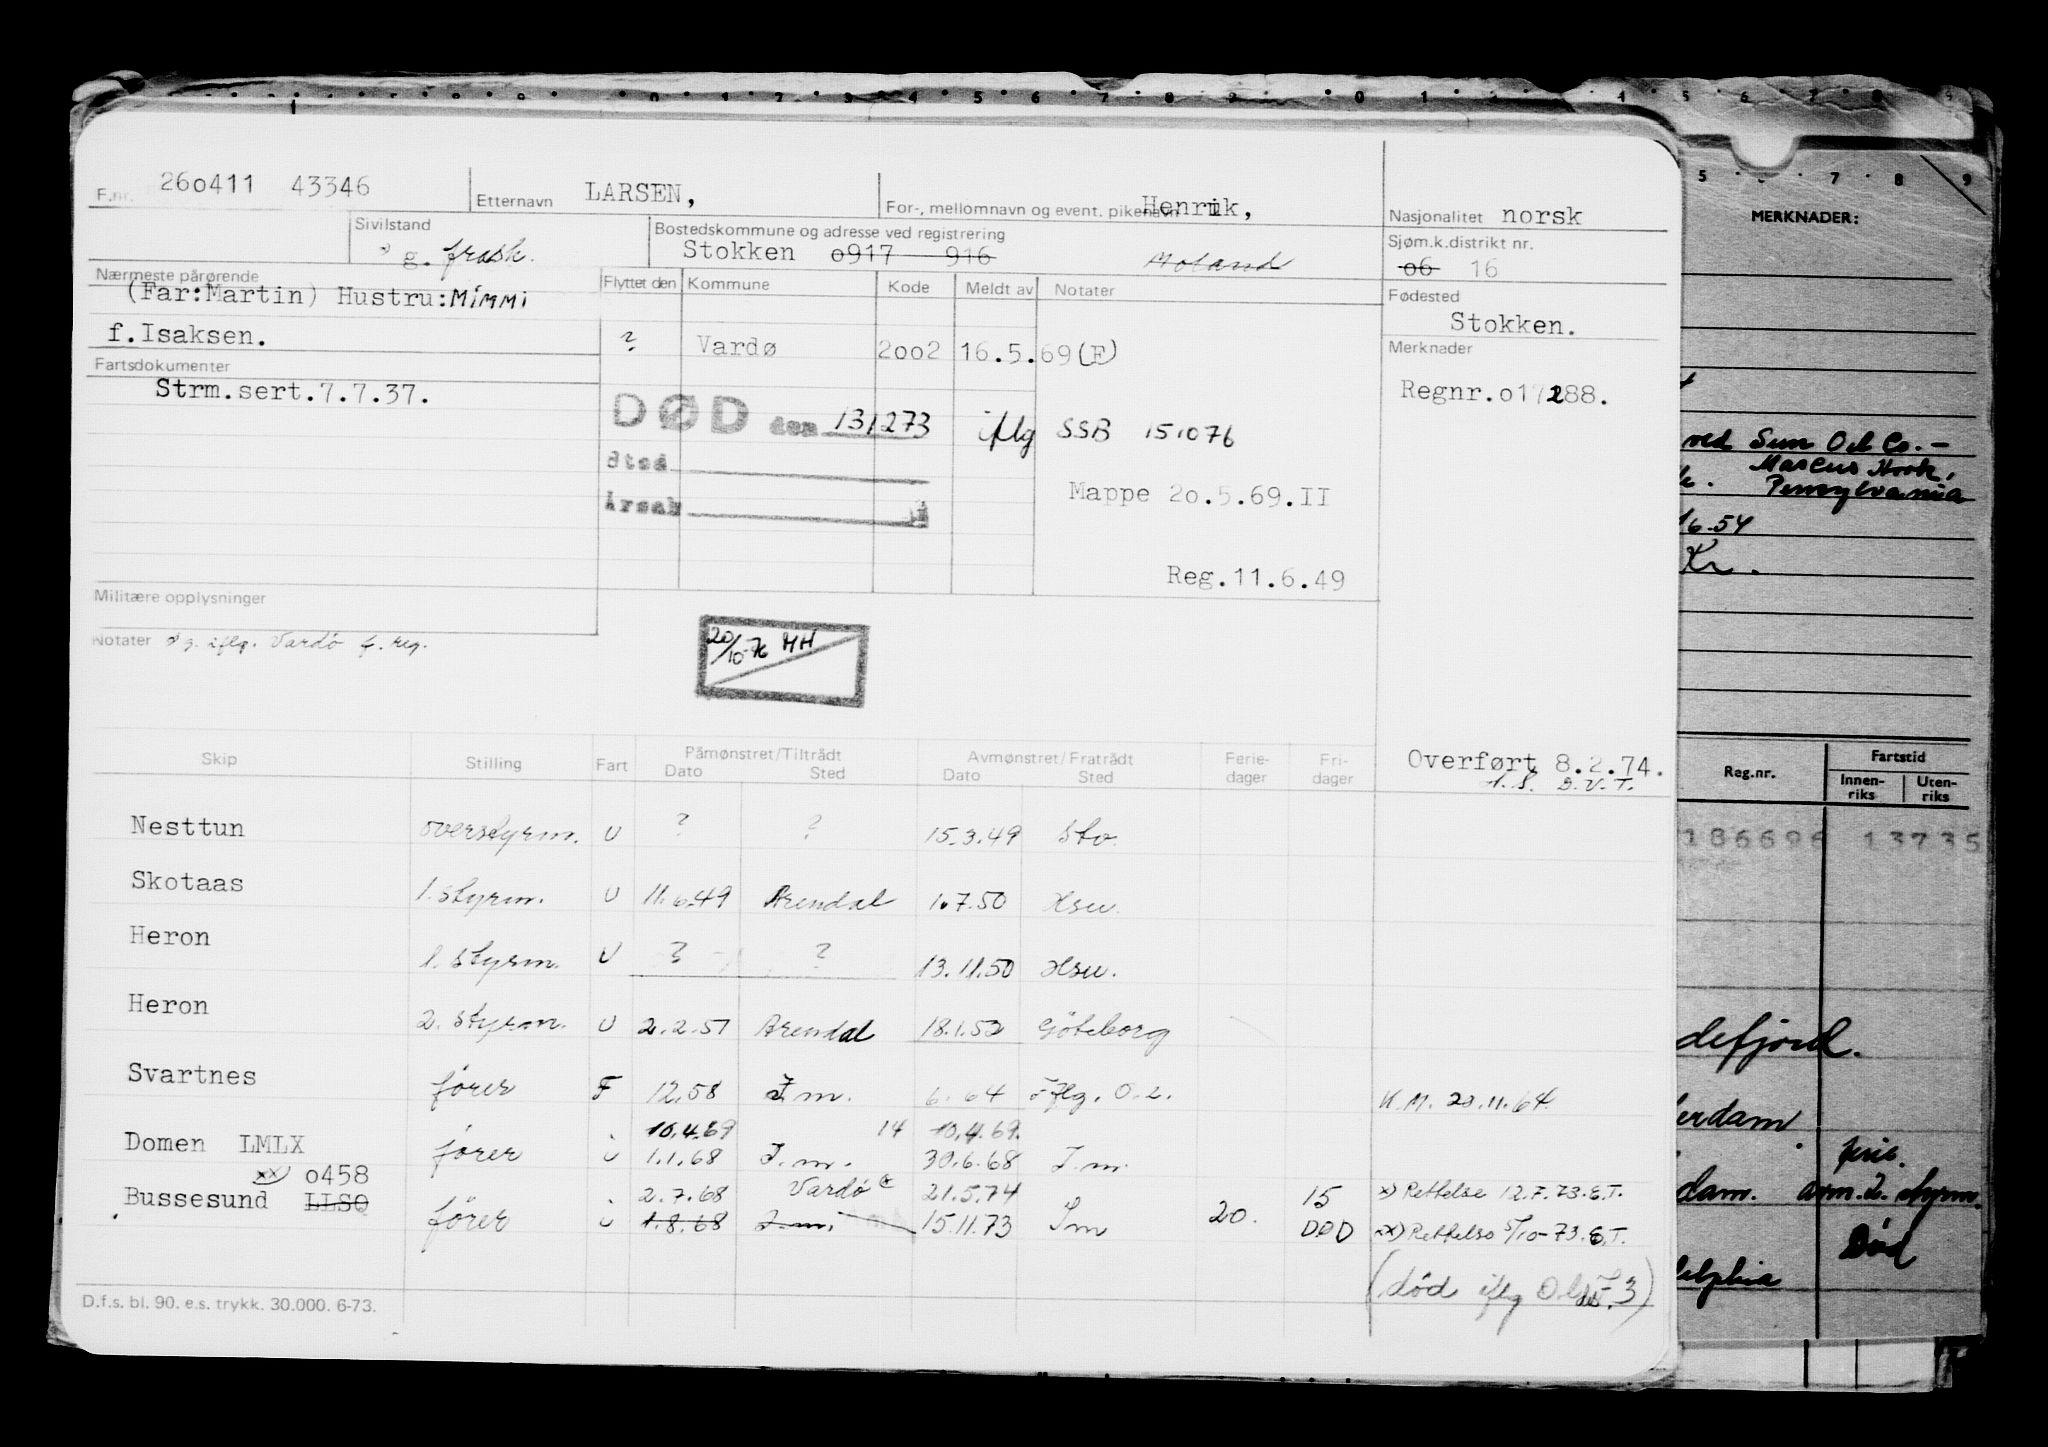 F.nr. 26o411 43346
Etternavn LARSEN,
For-, mellomnavn og event. pikenavn Henrik,
Nasjonalitet norsk
Sivilstand
g. frask.
Bostedskommune og adresse ved registrering
Stokken o917 916 Moland
Sjøm.k.distrikt nr.
o6 16
Nærmeste pårørende
(Far:Martin) Hustru:MIMMI
f.Isaksen.
Flyttet den Kommune Kode Meldt av Notater
? Vardø 2oo2 16.5.69(F)
Fødested
Stokken.
Merknader
Regnr.o17288.
Fartsdokumenter
Strm.sert.7.7.37.
DØD den 131273 iflg SSB 151076
Sted
Årsak
Mappe 2o.5.69.II
Reg.11.6.49
Militære opplysninger
Notater g. iflg. Vardø f. reg.
20/10-76 HH
Skip Stilling Fart Påmønstret/Tiltrådt Avmønstret/Fratrådt Ferie-dager Fri-dager
Dato Sted Dato Sted
Overført 8.2.74.
D.V.T.
Nesttun overstyrm. U ? ? 15.3.49 Sto.
Skotaas 1. styrm. U 11.6.49 Arendal 1.7.50 Hsu.
Heron 1. styrm. U ? ? 13.11.50 Hsu.
Heron 2. styrm. U 2.2.51 Arendal 18.1.52 Göteborg
Svartnes fører F 12.58 I.m. 6.64 Iflg. O.L. K.M. 20.11.64.
10.4.69 14 10.4.69.
Domen LMLX fører U 1.1.68 I.m. 30.6.68 I.m.
xx) o458
2.7.68 Vardø 21.5.74 15 x) Rettelse 12.7.73.E.T.
Bussesund LLSQ fører U 1.8.68 I.m. 15.11.73 Im 20. DØD xx) Rettelse 5/10-73.E.T.
(død iflg O.L. 3)
D.f.s. bl. 90. e.s. trykk. 30.000. 6-73.
MERKNADER:
ved Sun Oil Co.-
Marcus Hook,
Pennsylvania
16.54
Kr.
Reg.nr. Fartstid
Innen-riks Uten-riks
186696 13735
defjord.
erdam
dam. avm. 2. styrm.
Død
delphia